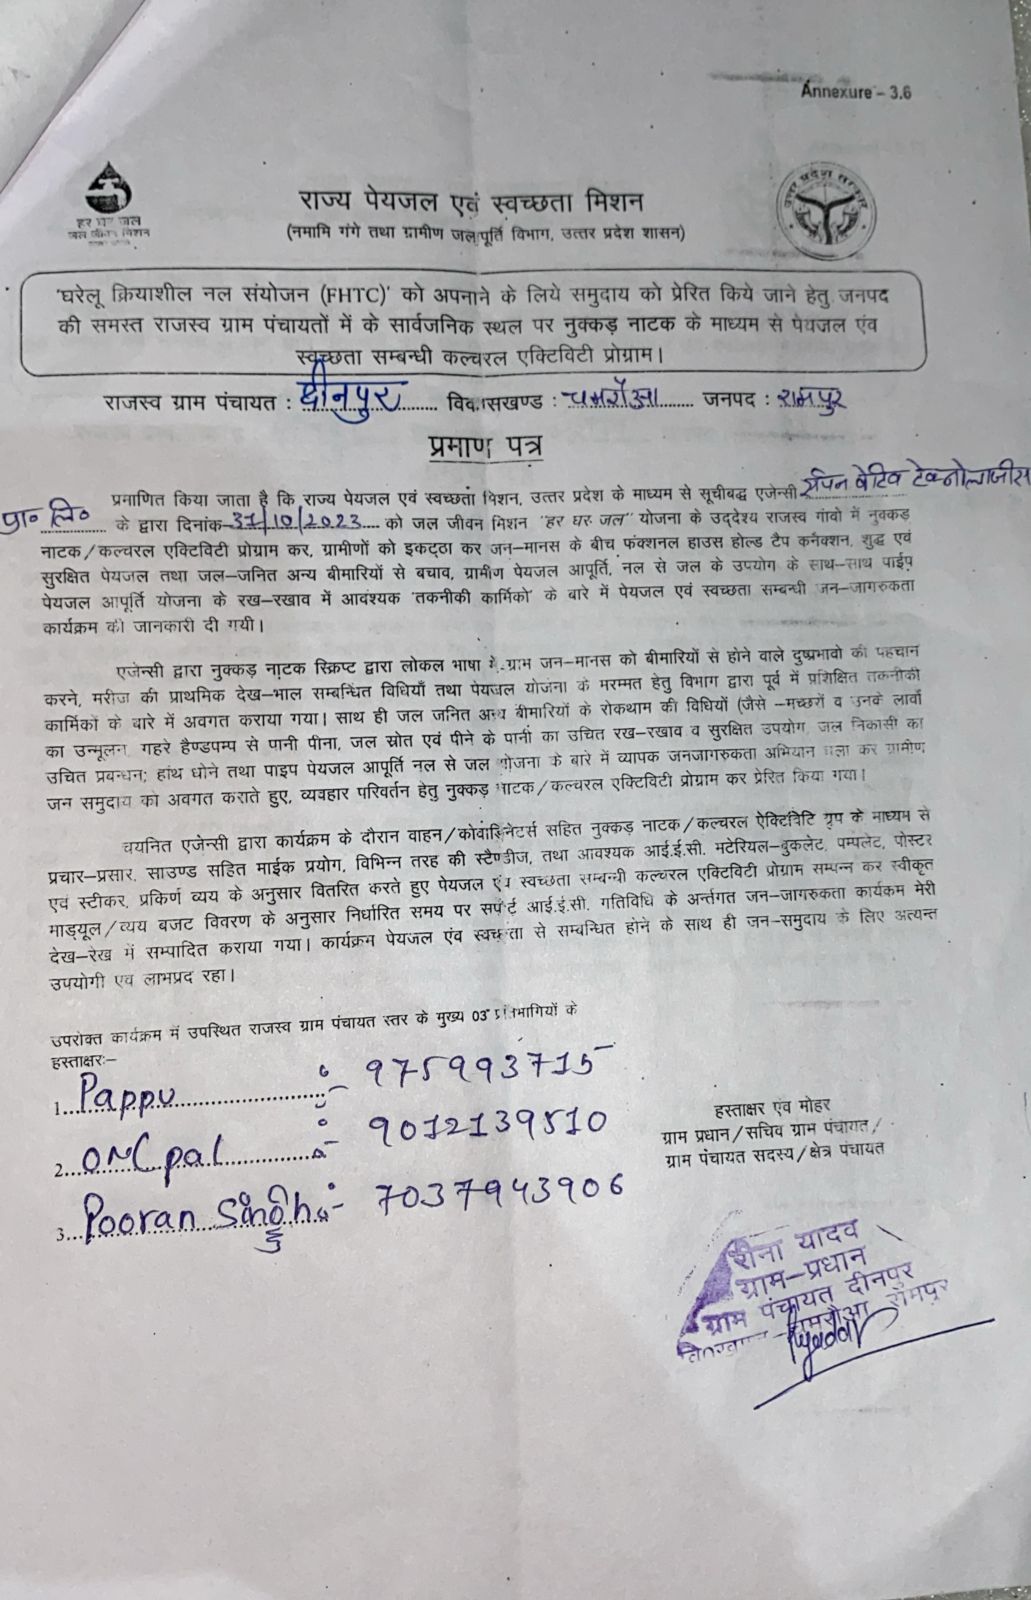 Annexure - 3.6
हर घर जल
जल जीवन मिशन
उत्तर प्रदेश सरकार
राज्य पेयजल एवं स्वच्छता मिशन
(नमामि गंगे तथा ग्रामीण जलपूर्ति विभाग, उत्तर प्रदेश शासन)
'घरेलू क्रियाशील नल संयोजन (FHTC)' को अपनाने के लिये समुदाय को प्रेरित किये जाने हेतु जनपद
की समस्त राजस्व ग्राम पंचायतों में के सार्वजनिक स्थल पर नुक्कड़ नाटक के माध्यम से पेयजल एंव
स्वच्छता सम्बन्धी कल्चरल एक्टिविटी प्रोग्राम।
राजस्व ग्राम पंचायत : दीनपुर विकासखण्ड : चमरौआ जनपद : रामपुर
प्रमाण पत्र
प्रमाणित किया जाता है कि राज्य पेयजल एवं स्वच्छता मिशन, उत्तर प्रदेश के माध्यम से सूचीबद्ध एजेन्सी टेक्नोलाजीस
प्रा० लि० के द्वारा दिनांक-31/10/2023 को जल जीवन मिशन "हर घर जल" योजना के उद्देश्य राजस्व गांवो में नुक्कड़
नाटक/कल्चरल एक्टिविटी प्रोग्राम कर, ग्रामीणों को इकट्ठा कर जन-मानस के बीच फंक्शनल हाउस होल्ड टैप कनैक्शन, शुद्ध एवं
सुरक्षित पेयजल तथा जल-जनित अन्य बीमारियों से बचाव, ग्रामीण पेयजल आपूर्ति, नल से जल के उपयोग के साथ-साथ पाईप
पेयजल आपूर्ति योजना के रख-रखाव में आवश्यक 'तकनीकी कार्मिको' के बारे में पेयजल एवं स्वच्छता सम्बन्धी जन-जागरुकता
कार्यक्रम की जानकारी दी गयी।
एजेन्सी द्वारा नुक्कड़ नाटक स्क्रिप्ट द्वारा लोकल भाषा में ग्राम जन-मानस को बीमारियों से होने वाले दुष्प्रभावो की पहचान
करने, मरीज की प्राथमिक देख-भाल सम्बन्धित विधियाँ तथा पेयजल योजना के मरम्मत हेतु विभाग द्वारा पूर्व में प्रशिक्षित तकनीकी
कार्मिकों के बारे में अवगत कराया गया। साथ ही जल जनित अन्य बीमारियों के रोकथाम की विधियों (जैसे -मच्छरों व उनके लार्वा
का उन्मूलन, गहरे हैण्डपम्प से पानी पीना, जल स्रोत एवं पीने के पानी का उचित रख-रखाव व सुरक्षित उपयोग, जल निकासी का
उचित प्रबन्धन; हांथ धोने तथा पाइप पेयजल आपूर्ति नल से जल योजना के बारे में व्यापक जनजागरुकता अभियान चला कर ग्रामीण
जन समुदाय को अवगत कराते हुए, व्यवहार परिवर्तन हेतु नुक्कड़ नाटक/कल्चरल एक्टिविटी प्रोग्राम कर प्रेरित किया गया।
चयनित एजेन्सी द्वारा कार्यक्रम के दौरान वाहन/कोवार्डिनेटर्स सहित नुक्कड़ नाटक/कल्चरल ऐक्टिविटि ग्रुप के माध्यम से
प्रचार-प्रसार, साउण्ड सहित माईक प्रयोग, विभिन्न तरह की स्टैण्डीज, तथा आवश्यक आई.ई.सी. मटेरियल-बुकलेट, पम्पलेट, पोस्टर
एवं स्टीकर, प्रकिर्ण व्यय के अनुसार वितरित करते हुए पेयजल एंव स्वच्छता सम्बन्धी कल्चरल एक्टिविटी प्रोग्राम सम्पन्न कर स्वीकृत
माड्यूल/व्यय बजट विवरण के अनुसार निर्धारित समय पर सपोर्ट आई.ई.सी. गतिविधि के अर्न्तगत जन-जागरुकता कार्यकम मेरी
देख-रेख में सम्पादित कराया गया। कार्यक्रम पेयजल एंव स्वच्छता से सम्बन्धित होने के साथ ही जन-समुदाय के लिए अत्यन्त
उपयोगी एवं लाभप्रद रहा।
उपरोक्त कार्यक्रम में उपस्थित राजस्व ग्राम पंचायत स्तर के मुख्य 03 प्रतिभागियों के
हस्ताक्षरः-
1. Pappu :- 975993715
2. OMCpal :- 9012139510
3. Pooran Singh :- 7037943906
हस्ताक्षर एंव मोहर
ग्राम प्रधान/सचिव ग्राम पंचायत/
ग्राम पंचायत सदस्य/क्षेत्र पंचायत
रीना यादव
ग्राम-प्रधान
ग्राम पंचायत दीनपुर
चमरौआ रामपुर